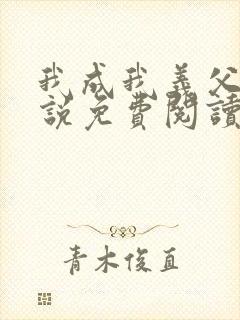 我成我義父
說免費閱讀
青木俊直